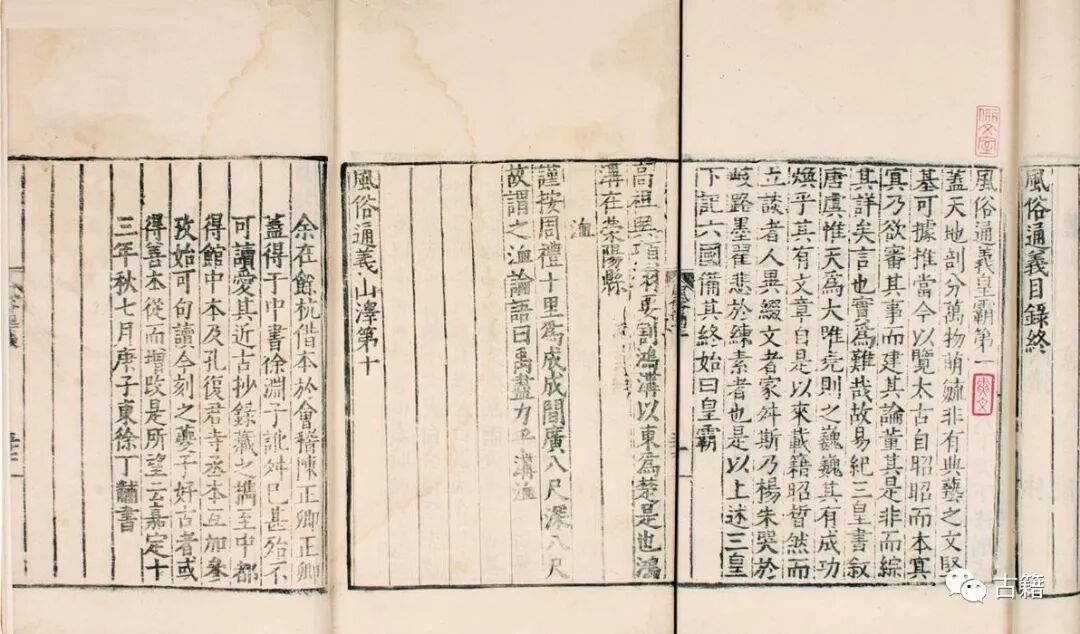 風俗通義目錄終
風俗通義皇霸第一
蓋天地剖分萬物萌毓非有典藝之文堅
基可據推當今以覽太古自昭昭而本冥
冥乃欲審其事而建其論董其是非而綜
其詳矣言也實爲難哉故易紀三皇書叙
唐虞惟天爲大唯堯則之巍巍其有成功
煥乎其有文章自是以來載籍昭晳然而
立談者人異綴文者家舛斯乃楊朱哭於
岐路墨翟悲於練素者也是以上述三皇
下記六國備其終始曰皇霸
高祖與項羽要割鴻溝以東爲楚是也鴻
溝在滎陽縣
洫
謹按周禮十里爲成成間廣八尺深八尺
故謂之洫論語曰禹盡力乎溝洫
風俗通義山澤第十
余在餘杭借本於會稽陳正卿正卿
蓋得于中書徐淵子訛舛已甚殆不
可讀愛其近古抄錄藏之攜至中都
得館中本及孔復君寺丞本互加參
攷始可句讀今刻之夔子好古者或
得善本從而增改是所望云嘉定十
三年秋七月庚子東徐丁黼書
古籍